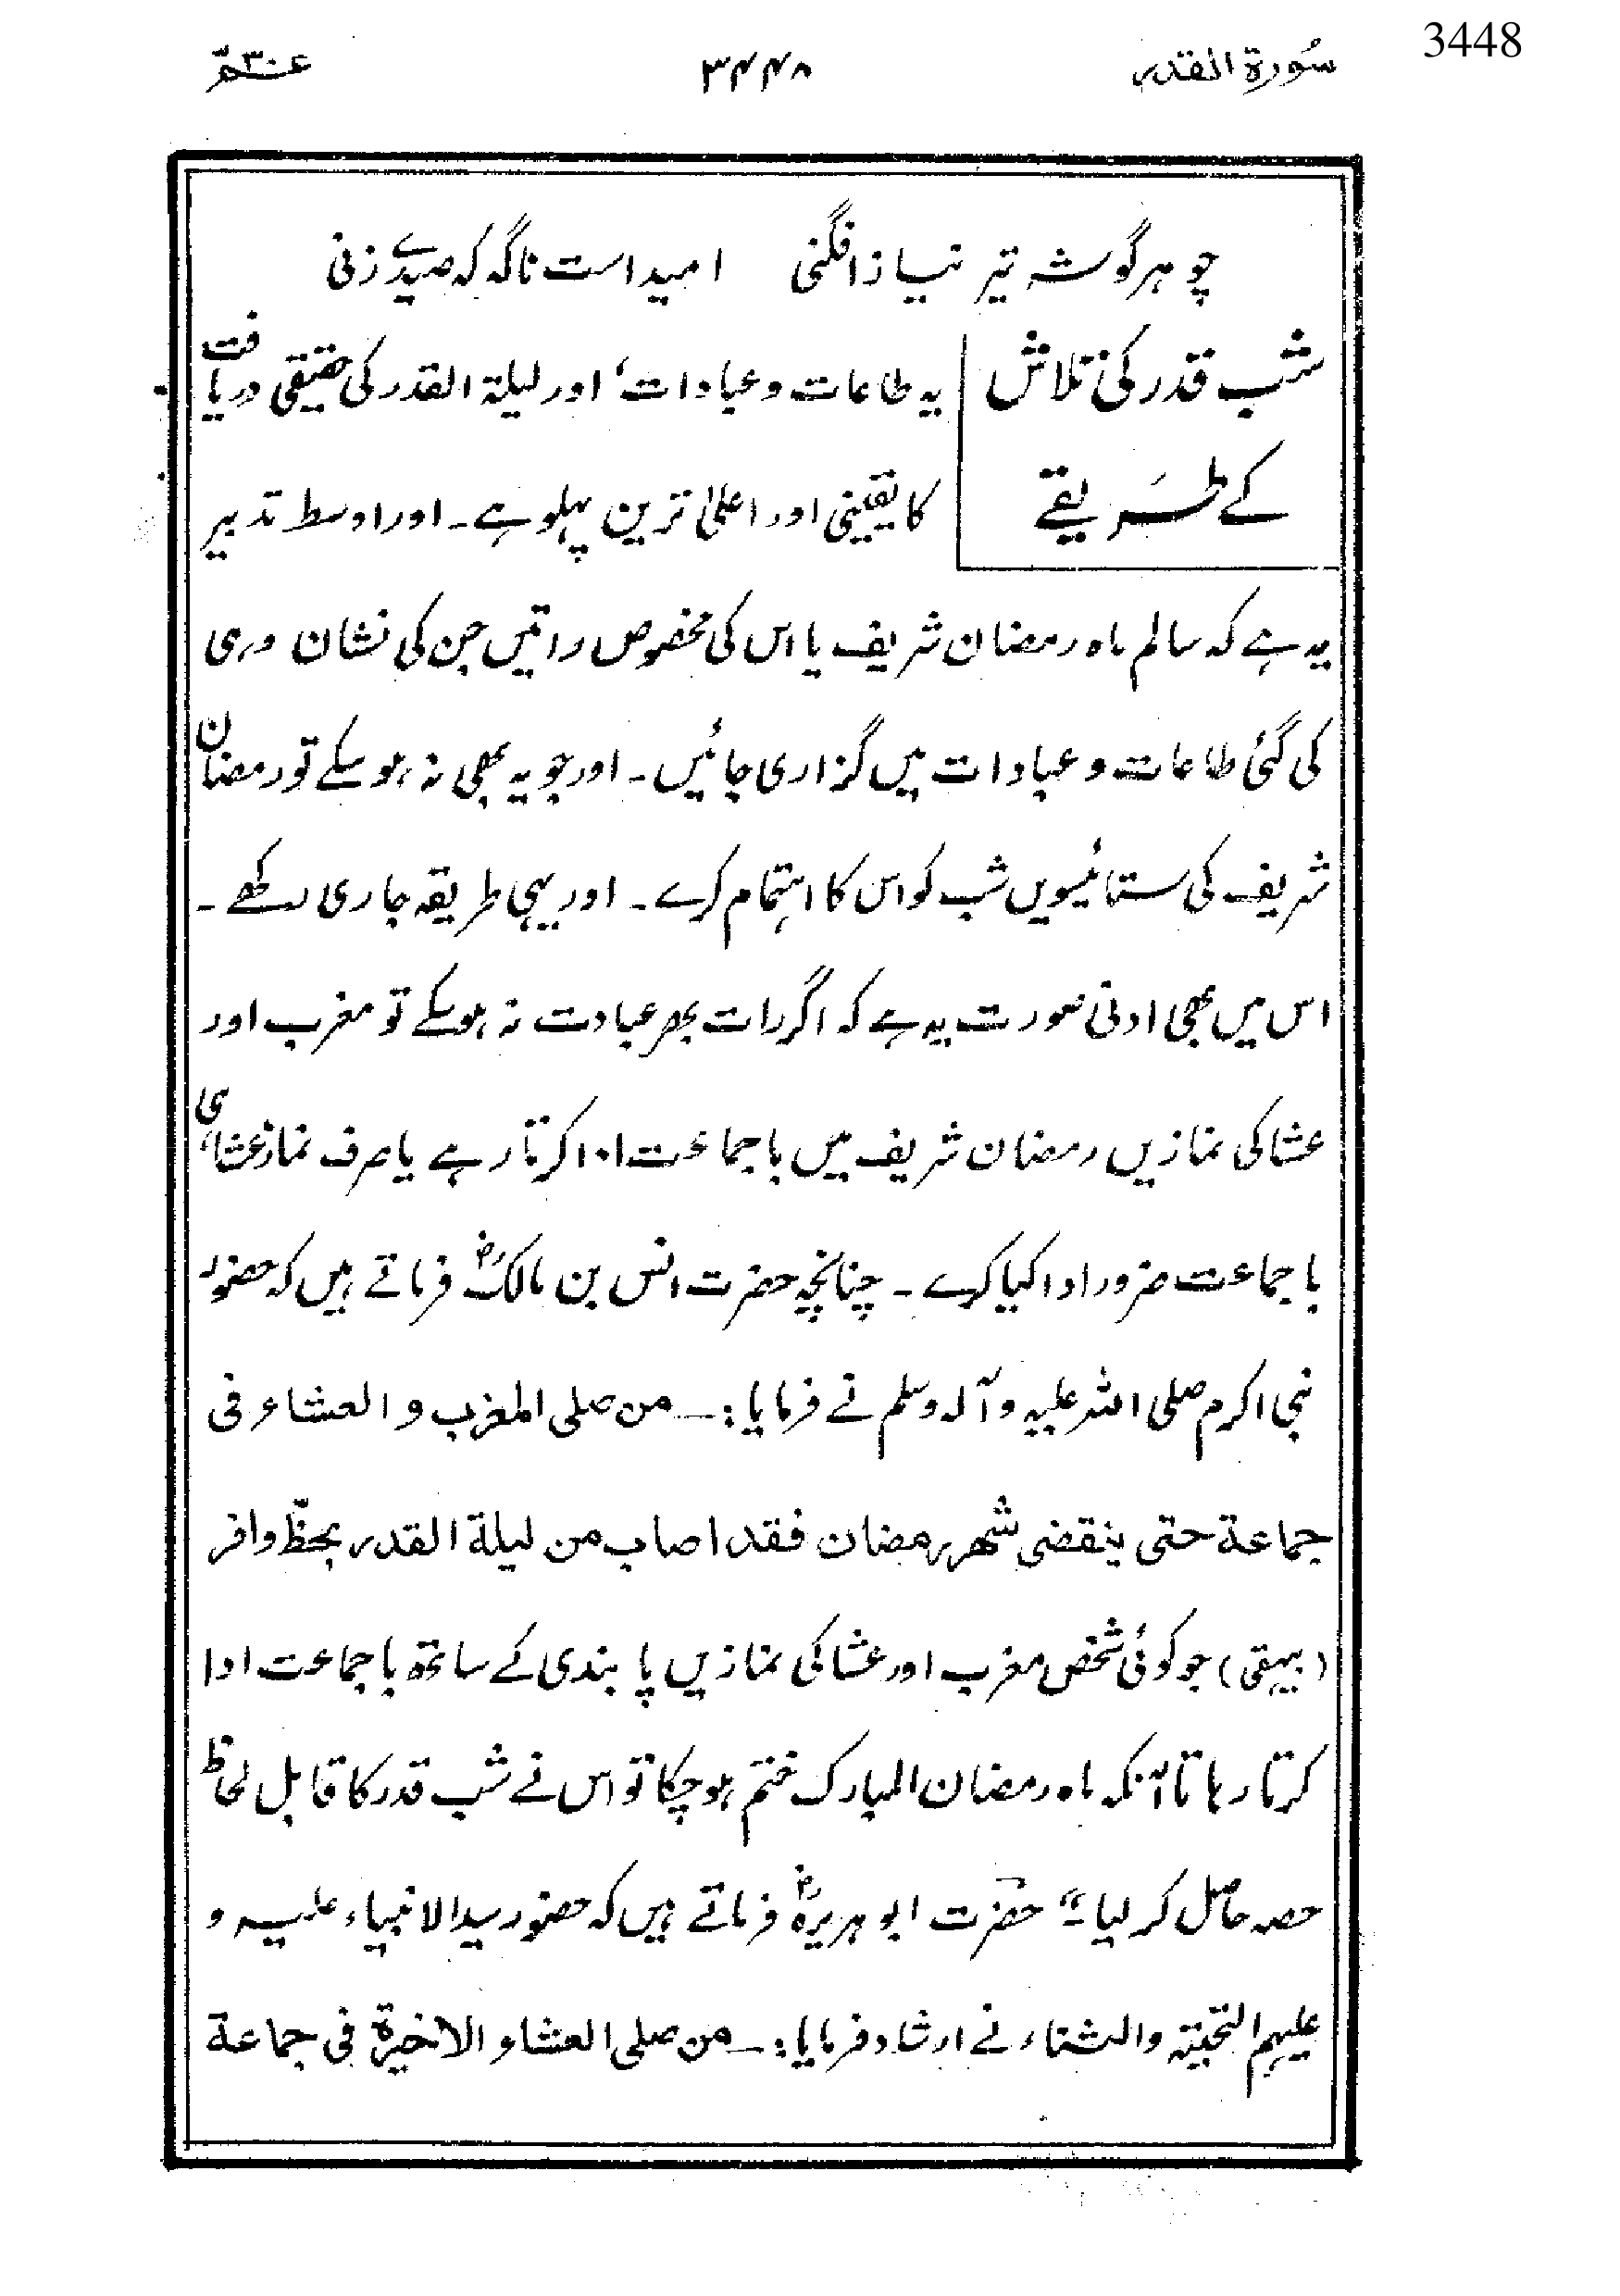 3448
سُورۃ القدر ۳۴۴۸ عۃ ۳۰
چو ہر گوشہ تیر نیاز افگنی امید است ناگہ کہ صیدے زنی
شب قدر کی تلاش
کے طریقے
یہ طاعات و عبادات، اور لیلۃ القدر کی حقیقی دریافت
کا یقینی اور اعلیٰ ترین پہلو ہے۔ اور اوسط تدبیر
یہ ہے کہ سالم ماہ رمضان شریف یا اس کی مخصوص راتیں جن کی نشان دہی
کی گئی طاعات و عبادات میں گزاری جائیں۔ اور جو یہ بھی نہ ہو سکے تو رمضان
شریف کی ستائیسویں شب کو اس کا اہتمام کرے۔ اور یہی طریقہ جاری رکھے۔
اس میں بھی ادنی صورت یہ ہے کہ اگر رات بھر عبادت نہ ہو سکے تو مغرب اور
عشا کی نمازیں رمضان شریف میں با جماعت ادا کرتا رہے یا صرف نماز عشا ہی
با جماعت ضرور ادا کیا کرے۔ چنانچہ حضرت انس بن مالکؓ فرماتے ہیں کہ حضور
نبی اکرم صلی اللہ علیہ و آلہ وسلم نے فرمایا :۔ من صلی المغرب و العشاء فی
جماعۃ حتی ینقضی شھر رمضان فقد اصاب من لیلۃ القدر بحظّ وافر
(بیہقی) جو کوئی شخص مغرب اور عشا کی نمازیں پابندی کے ساتھ با جماعت ادا
کرتا رہا تا آنکہ ماہ رمضان المبارک ختم ہو چکا تو اس نے شب قدر کا قابل لحاظ
حصہ حاصل کر لیا۔“ حضرت ابو ہریرہؓ فرماتے ہیں کہ حضور سید الانبیاء علیہ و
علیہم التحیۃ والثناء نے ارشاد فرمایا :۔ من صلی العشاء الاخیرۃ فی جماعۃ